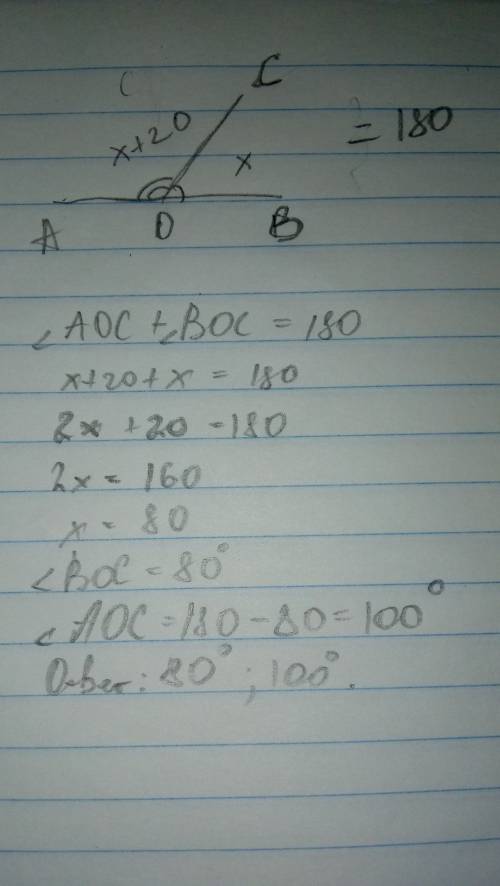 C
x+20
x
= 180
A O B
∠AOC + ∠BOC = 180
x+20+x = 180
2x +20 =180
2x = 160
x = 80
∠BOC = 80°
∠AOC = 180 - 80 = 100°
Ответ: 80°; 100°.